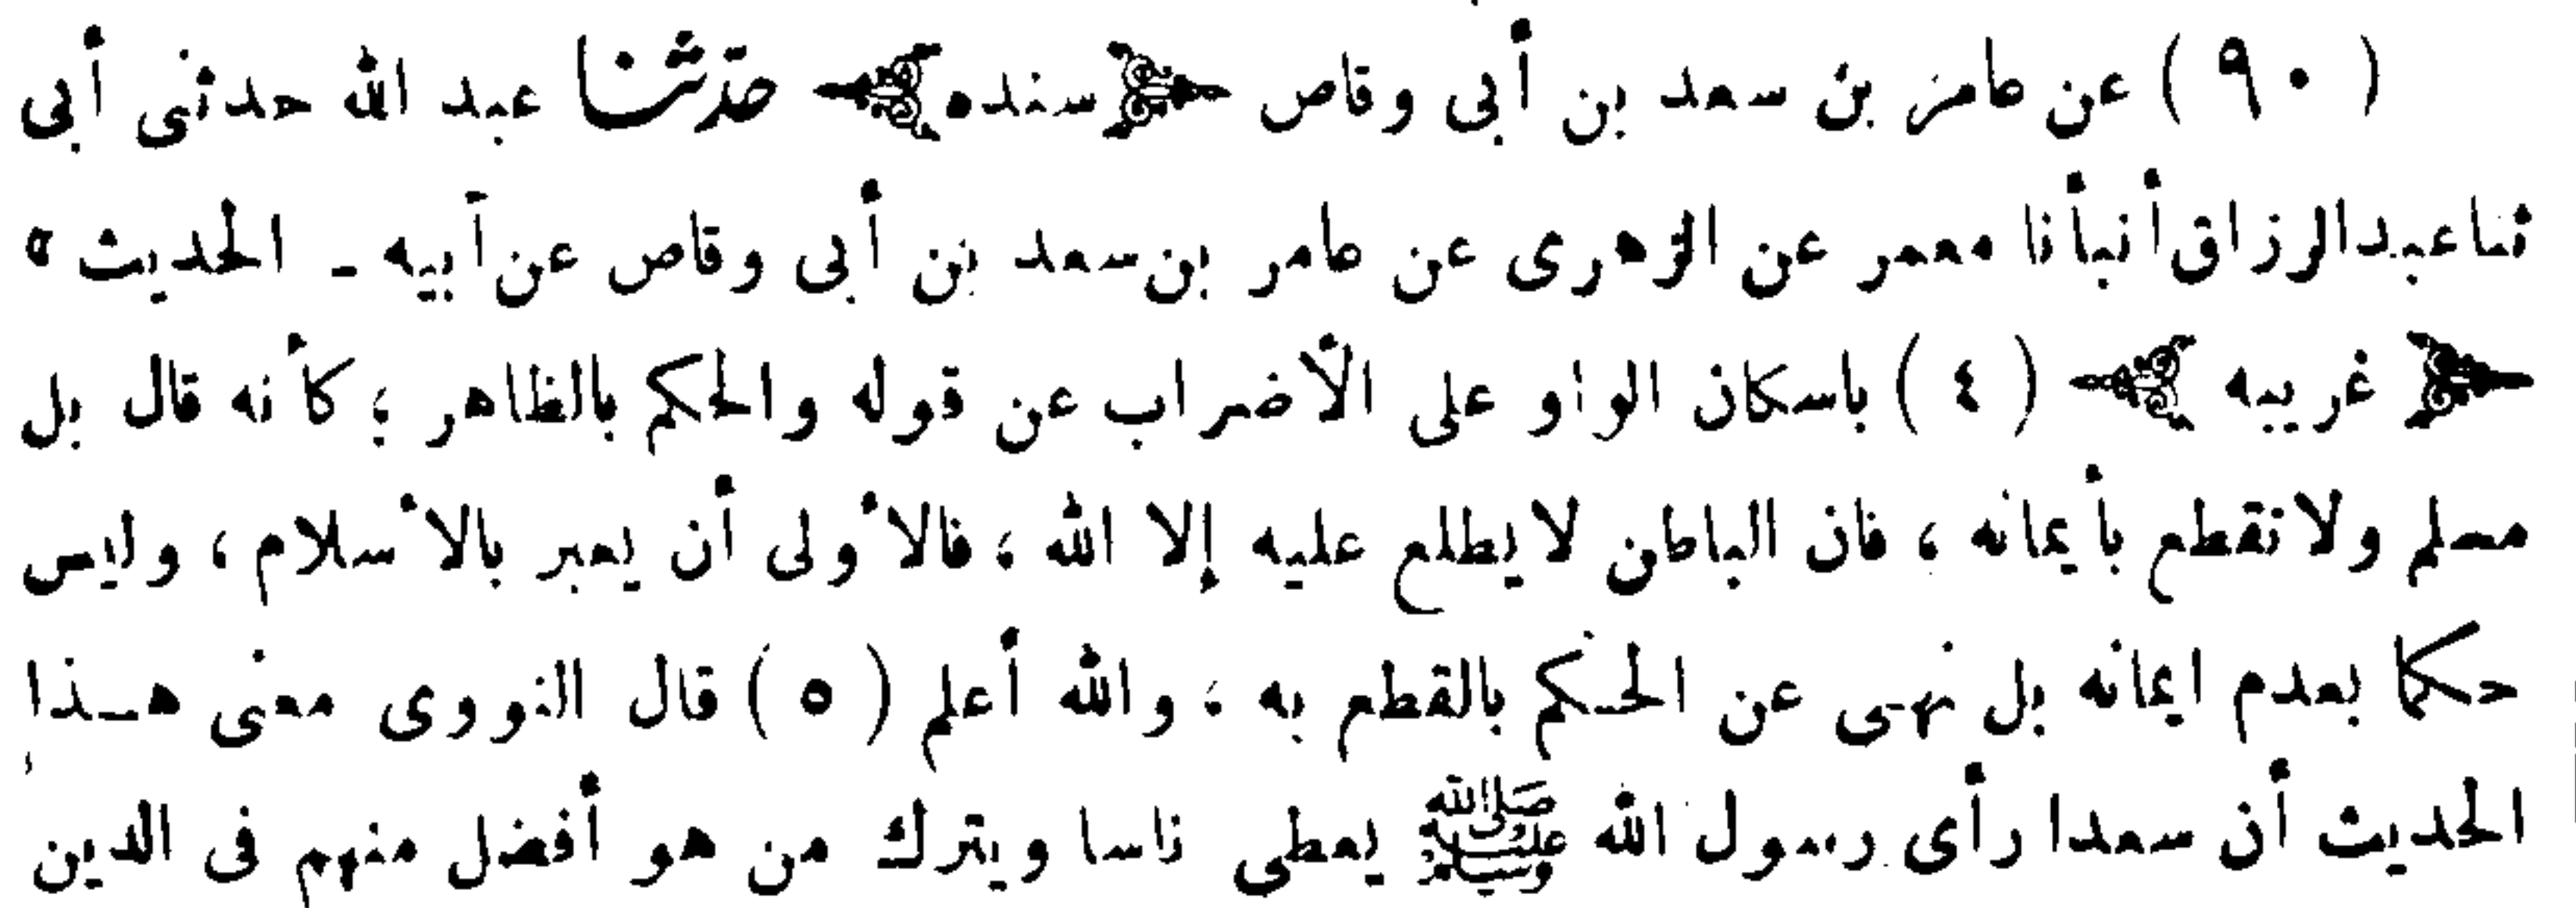 ( ٩٠ ) عن عامر بن سعد بن أبى وقاص ﴿سنده﴾ حدّثنا عبد الله حدثنى أبى
ثنا عبد الرزاق أنبأنا معمر عن الزهرى عن عامر بن سعد بن أبى وقاص عن أبيه ـ الحديث »
﴿ غريبه ﴾ ( ٤ ) باسكان الواو على الأضراب عن قوله والحكم بالظاهر ؛ كأنه قال بل
مسلم ولا نقطع بأيمانه ، فان الباطن لا يطلع عليه إلا الله ، فالأولى أن يعبر بالأسلام ، وليس
حكما بعدم ايمانه بل نهى عن الحكم بالقطع به ، والله أعلم ( ٥ ) قال النووى معنى هـذا
الحديث أن سعدا رأى رسول الله ﷺ يعطى ناسا ويترك من هو أفضل منهم فى الدين